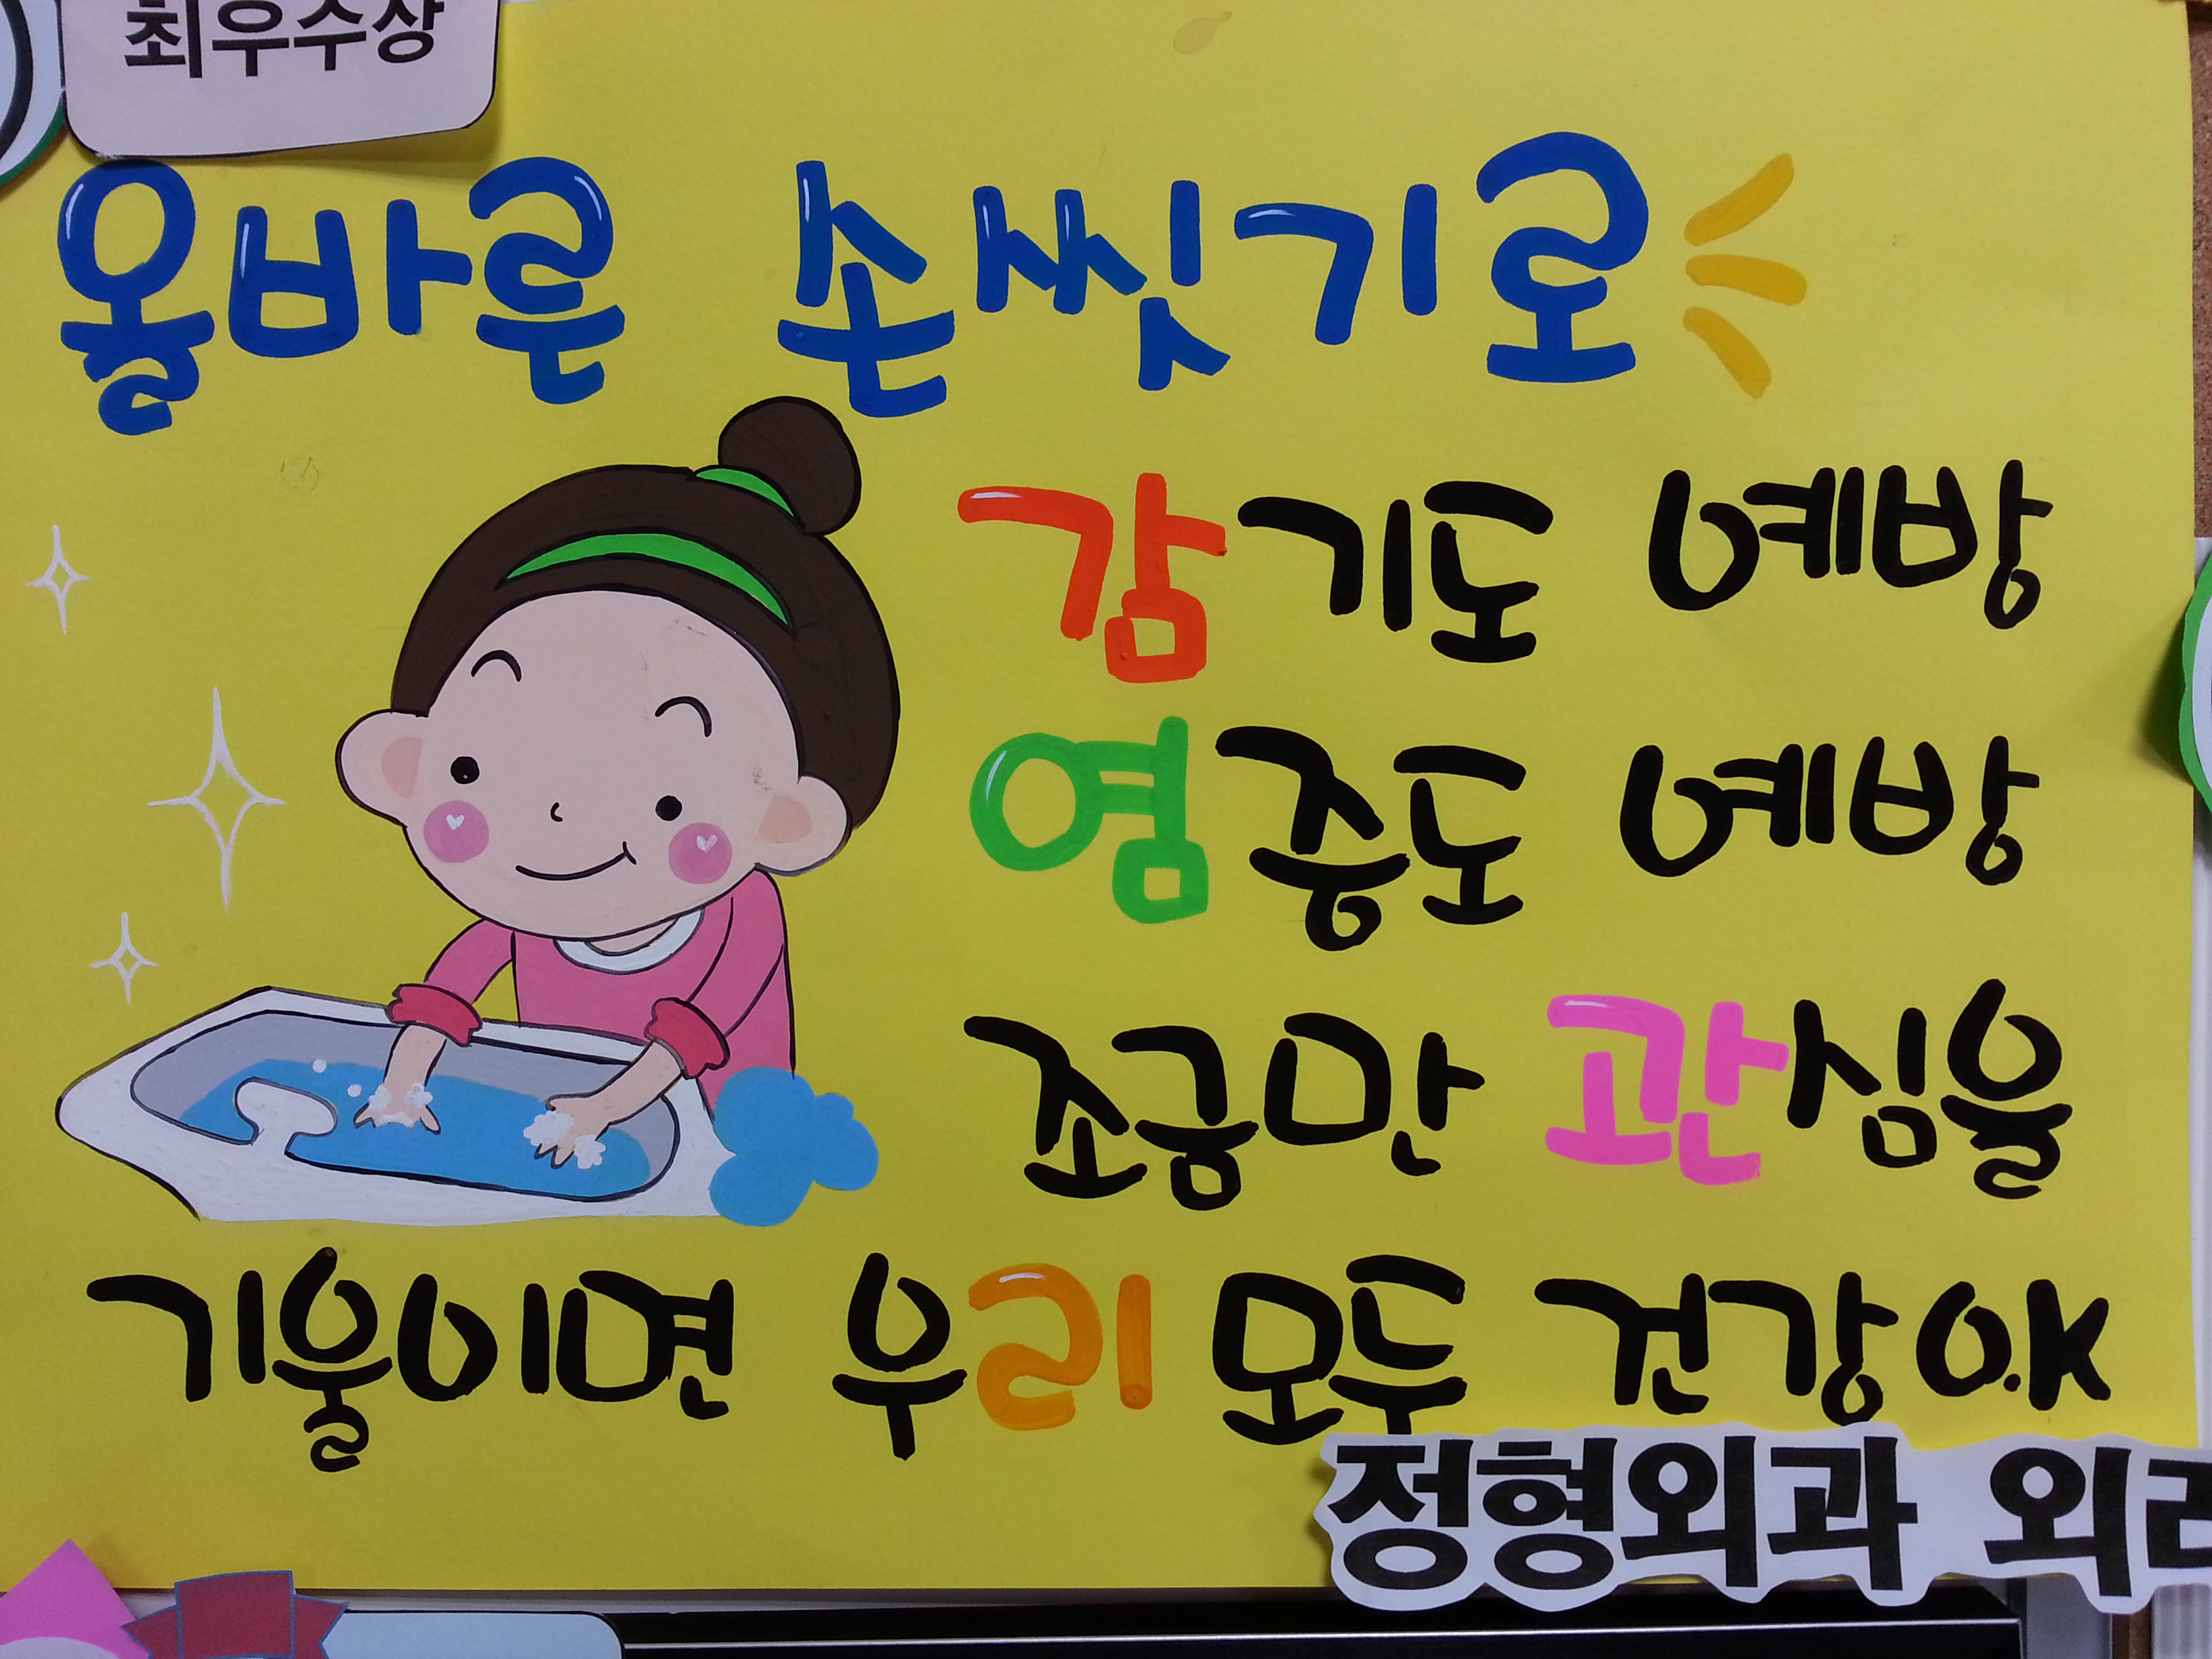 최우수상
올바른 손씻기로
감기도 예방
염증도 예방
조금만 관심을
기울이면 우리 모두 건강 O.K
정형외과